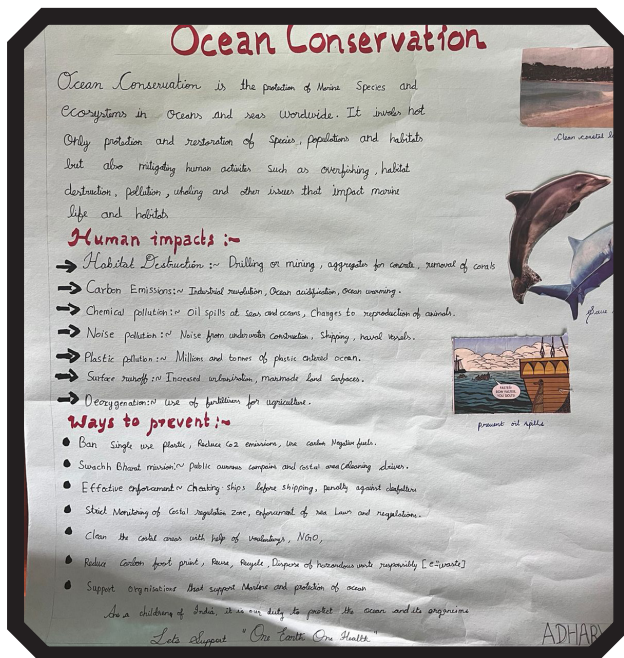 Ocean Conservation
Ocean Conservation is the protection of Marine Species and
ecosystems in oceans and seas worldwide. It involes not
Only protection and restoration of species, populations and habitats
but also mitigating human activites such as overfishing, habitat
destruction, pollution, whaling and other issues that impact marine
life and habitats
Human impacts :~
→ Habitat Destruction :~ Drilling or mining, aggregates for concrete, removal of corals
→ Carbon Emissions:~ Industrial revolution, Ocean acidification, Ocean warming.
→ Chemical pollution:~ Oil spills at seas and oceans, Changes to reproduction of animals.
→ Noise pollution :~ Noise from underwater construction, Shipping, naval vessels.
→ Plastic pollution :~ Millions and tonnes of plastic entered ocean.
→ Surface runoff :~ Increased urbanisation, manmade land surfaces.
→ Deoxygenation:~ use of fertilizers for agriculture.
Ways to prevent :~
• Ban single use plastic, Reduce Co2 emissions, use carbon Negative fuels.
• Swachh Bharat mission:~ public awareness campains and costal area cleaning drives.
• Effective enforcement~ Cheaking ships before shipping, penalty against defaulters
• Strict Monitoring of Costal regulation Zone, enforcement of sea Laws and regulations.
• Clean the costal areas with help of NGO,
• Reduce Carbon foot print, Reuse, Recycle, Dispose of hazardous waste responsibly [e-waste]
• Support organisations that support Marine and protection of ocean
As a childreng of India, it is our duty to protect the ocean and its organisms
Lets Support "One Earth One Health"
Clean coastal
Save
prevent oil spills
ADHAR